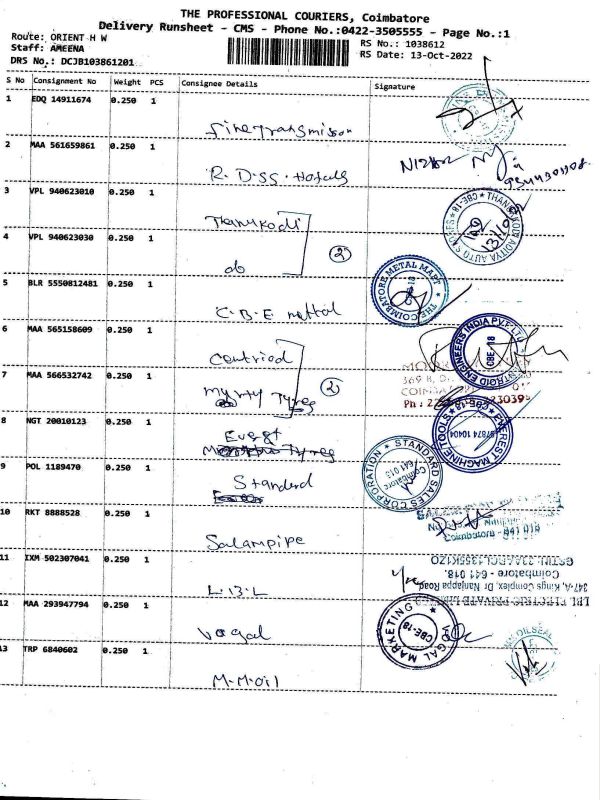 THE PROFESSIONAL COURIERS, Coimbatore
Delivery Runsheet - CMS - Phone No.:0422-3505555 - Page No.:1
Route: ORIENT H W
RS No.: 1038612
Staff: AMEENA
RS Date: 13-Oct-2022
DRS No.: DCJB103861201
S No Consignment No Weight PCS Consignee Details Signature
1 EDQ 14911674 0.250 1
2 MAA 561659861 0.250 1
R. D. SS. Hotals
3 VPL 940623010 0.250 1
Thanukodi
4 VPL 940623030 0.250 1
do
2
THANUKODI ADITYA AUTO CARES CBE-18
5 BLR 5550812481 0.250 1
C. B. E mettal
THE COIMBATORE METAL MART
6 MAA 565158609 0.250 1
Centriod
CENTROID ENGINEERS INDIA PVT. LTD CBE-18
7 MAA 566532742 0.250 1
My My Tyres
2
369 B,
8 NGT 20010123 0.250 1
Everst
Tyres
EVEREST MACHINE TOOLS CBE-18
97874 10404
9 POL 1189470 0.250 1
Standerd
STANDARD SALES CORPORATION
Coimbatore
641 013
10 RKT 8888528 0.250 1
Salampipe
Coimbatore - 641 018
11 IXM 502307041 0.250 1
L. B. L
LBL ELECTRIC PRIVATE
347-A, Kings Complex, Dr Nanjappa Road
Coimbatore - 641 018.
12 MAA 293947794 0.250 1
Vogal
VOGAL MARKETING CBE-18
13 TRP 6840602 0.250 1
M. M. oil
OILSEAL